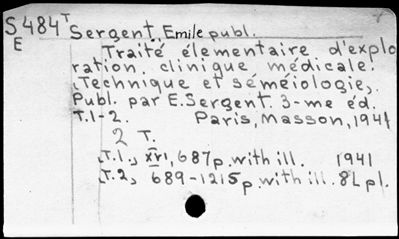 S484 T Sergent, Emile publ.
E
Traité élementaire d'explo
ration clinique médicale.
Technique et séméiologie,.
Publ. par E.Sergent. 3-me éd.
T.1-2. Paris, Masson, 1941
2 T.
T.1., XVI, 687p. with ill. 1941
T.2, 689-1215p. with ill. 8L pl.